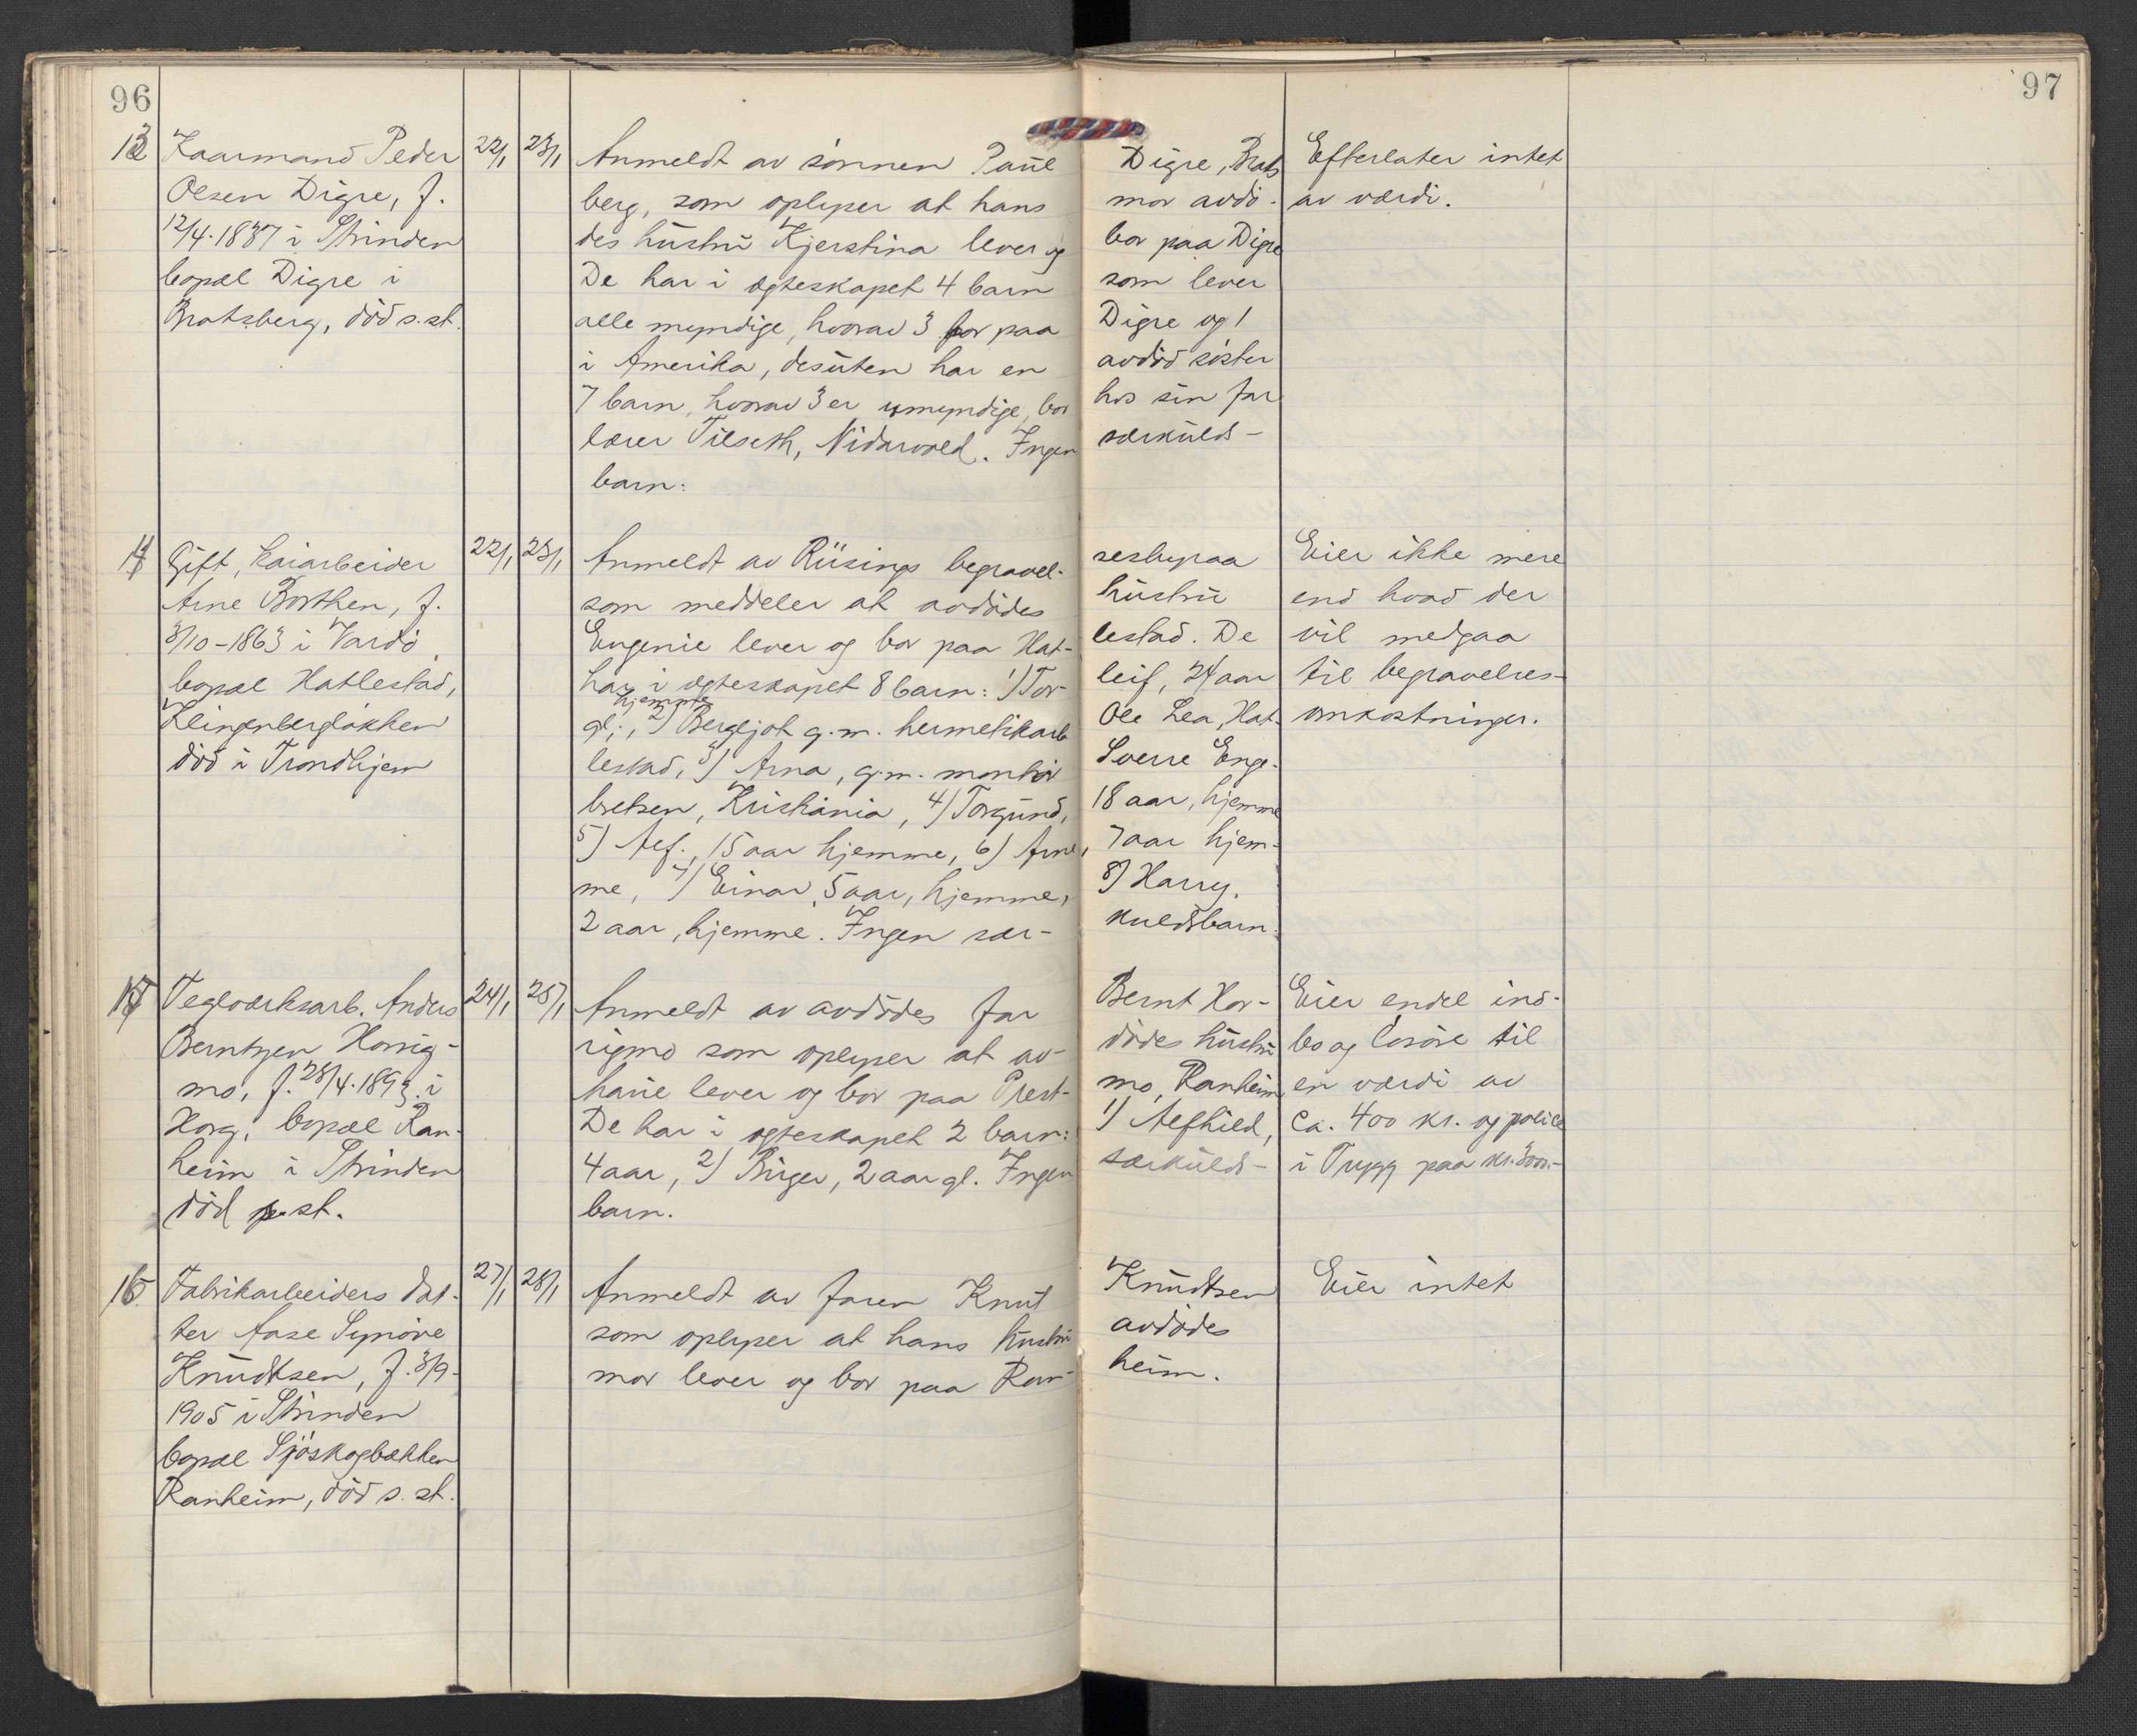 96
97
13 Kaarmand Peder 22/1 23/1 Anmeldt av sønnen Paul Digre, Brats Efterlater intet
Olsen Digre, f. berg, som oplyser at hans mor avdø- av værdi.
12/4.1837 i Strinden des hustru Kjerstina lever og bor paa Digre
bopæl Digre i De har i ægteskapet 4 barn som lever
Bratsberg, död s.st. alle myndige, hvorav 3 bor paa Digre og 1
i Amerika, desuten har en avdød søster
7 barn, hvorav 3 er umyndige, bor hos sin far
lærer Tilseth, Nidarvold. Ingen særkulds-
barn.
14 Gift, kaiarbeider 22/1 23/1 Anmeldt av Riisings begravel- sesbyraa Eier ikke mere
Arne Borthen, f. som meddeler at avdødes hustru end hvad der
3/10-1863 i Vardø Eugenie lever og bor paa Hat- lestad. De vil medgaa
bopæl Hatlestad, har i ægteskapet 8 barn: 1) Tor- leif, 24 aar til begravelses-
hjemme
Klingenbergløkken gl., 2) Bergljot g.m. hermetikarb Ole Lea, Hat- omkostninger.
död i Trondhjem lestad, 3) Arna, g.m. montør Sverre Enge-
bretsen, Kristiania, 4) Torgund, 18 aar, hjemme
5) Alf, 15 aar hjemme, 6) Arne, 7 aar hjem-
me, 7) Einar 5 aar, hjemme, 8) Harry,
2 aar, hjemme. Ingen sær- kuldsbarn.
15 Teglværksarb. Anders 24/1 25/1 Anmeldt av avdødes far Bernt Hor- Eier endel ind-
Berntzen Horrig- rigmo som oplyser at av- dødes hustru bo og løsøre til
mo, f. 28/4.1893 i haue lever og bor paa Prest- mo, Ranheim en værdi av
Horg, bopæl Ran- De har i ægteskapet 2 barn: 1) Alfhild, ca. 400 kr. og police
heim i Strinden 4 aar, 2) Birger, 2 aar gl. Ingen særkulds- i Trygg paa kr. 3000.-
död s.st. barn.
16 Fabrikarbeiders dat- 27/1 28/1 Anmeldt av faren Knut Knudtsen Eier intet
ter Aase Synøve som oplyser at hans hustru avdødes
Knudtsen, f. 3/9- mor lever og bor paa Ran- heim.
1905 i Strinden
bopæl Sjøskogbakken
Ranheim, död s.st.